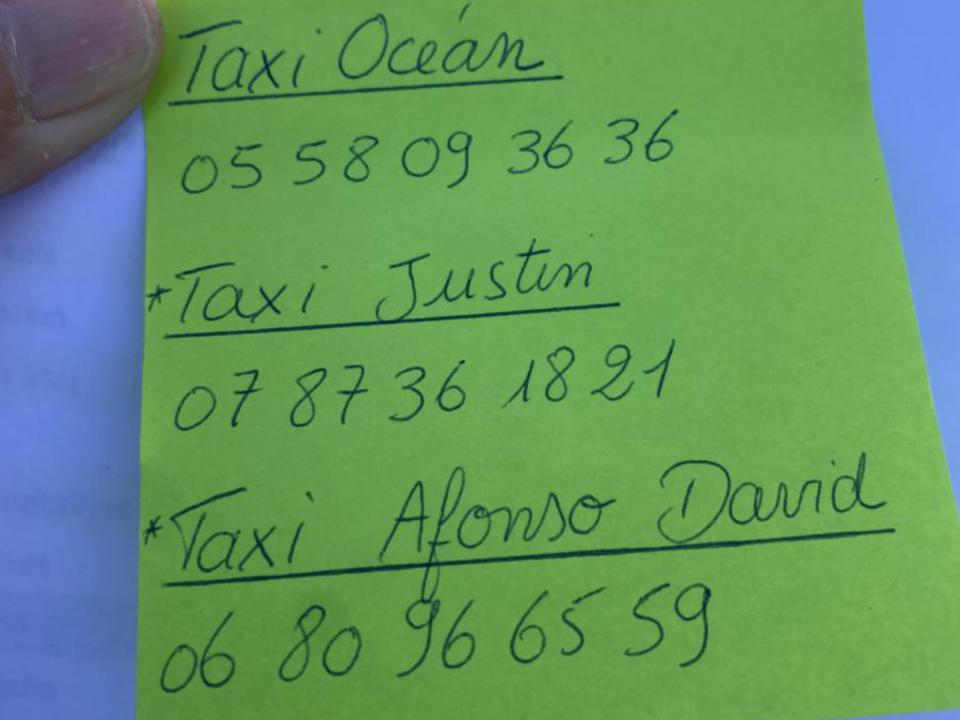 Taxi Océán
05 58 09 36 36
*Taxi Justin
07 87 36 18 21
*Taxi Afonso David
06 80 96 65 59